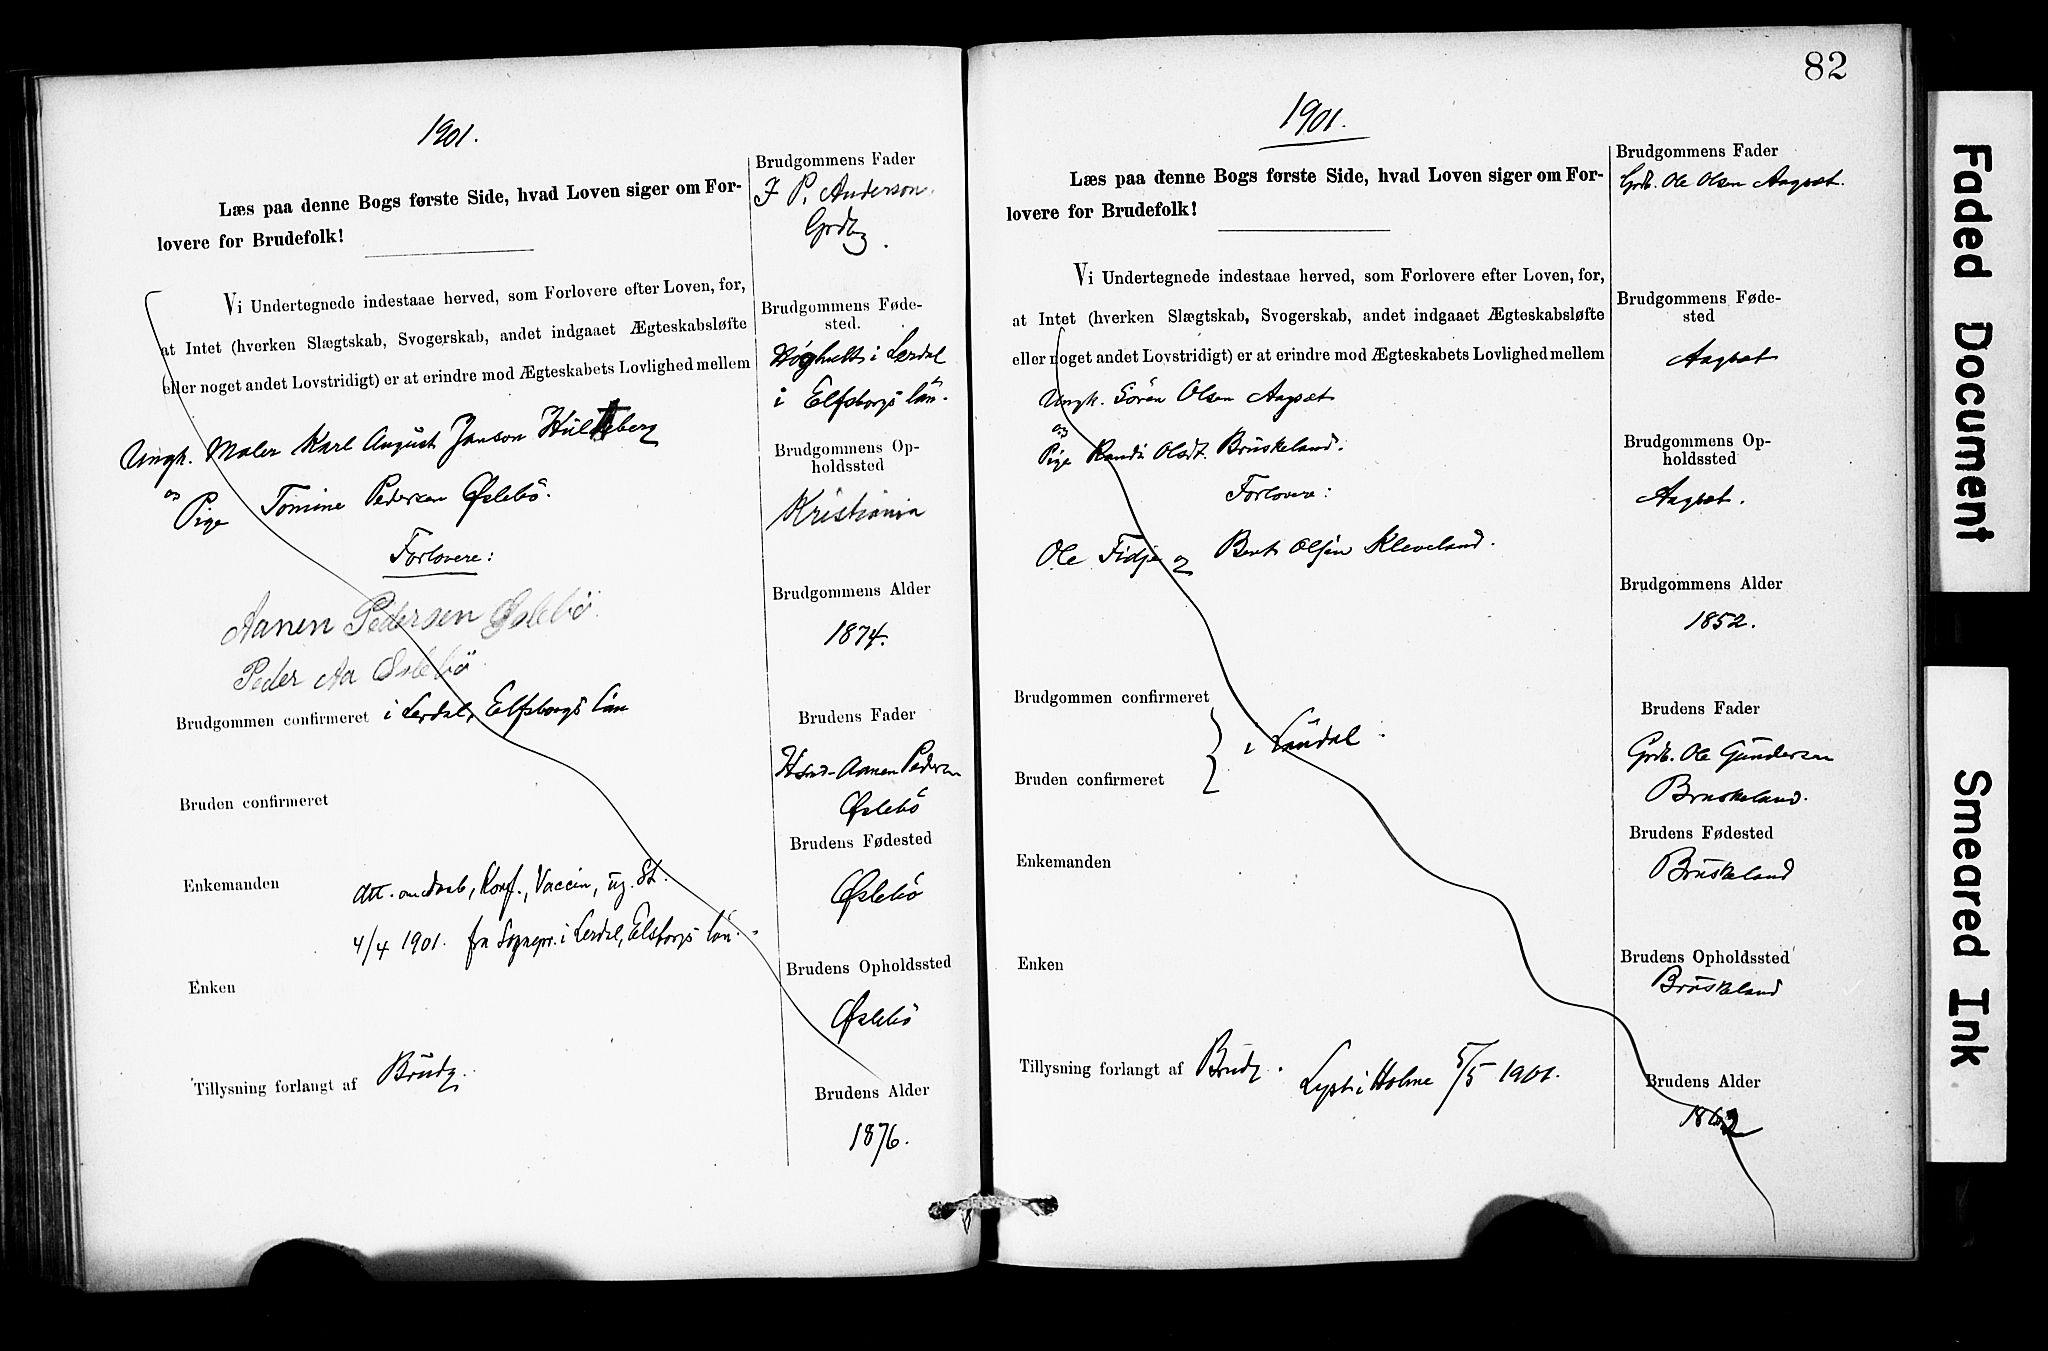 1901.
Læs paa denne Bogs første Side, hvad Loven siger om For-
lovere for Brudefolk!
Vi Undertegnede indestaae herved, som Forlovere efter Loven, for,
at Intet (hverken Slægtskab, Svogerskab, andet indgaaet Ægteskabsløfte
eller noget andet Lovstridigt) er at erindre mod Ægteskabets Lovlighed mellem
Ungk. Maler Karl August Janson Hultteberg
og
Pige Tomine Pedersen Øslebö.
Forlovere:
Aanen Pedersen Øslebö.
Peder Aa Øslebö
Brudgommen confirmeret i Lerdal, Elfsborgs län
Bruden confirmeret
Enkemanden att. om daab, Konf., Vaccin, ug. St.
4/4 1901. fra Sognepr. i Lerdal, Elsborgs län.
Enken
Tillysning forlangt af Brudg.
Brudgommens Fader
J P. Anderson.
Grdbg.
Brudgommens Føde-
sted.
i Lerdal
i Elfsborgs län.
Brudgommens Op-
holdssted
Kristiania
Brudgommens Alder
1874.
Brudens Fader
Aanen Pedersen
Øslebö
Brudens Fødested
Øslebö
Brudens Opholdssted
Øslebö
Brudens Alder
1876.
82
1901.
Læs paa denne Bogs første Side, hvad Loven siger om For-
lovere for Brudefolk!
Vi Undertegnede indestaae herved, som Forlovere efter Loven, for,
at Intet (hverken Slægtskab, Svogerskab, andet indgaaet Ægteskabsløfte
eller noget andet Lovstridigt) er at erindre mod Ægteskabets Lovlighed mellem
Ungk. Sören Olsen Aagsæt
og
Pige Randi Olsdt. Bruskeland.
Forlovere:
Ole Fidje og Bent Olsen Kleveland.
Brudgommen confirmeret
i Laudal.
Bruden confirmeret
Enkemanden
Enken
Tillysning forlangt af Brudg. Lyst i Holme 5/5 1901.
Brudgommens Fader
Grdb. Ole Olsen Aagsæt.
Brudgommens Føde-
sted
Aagsæt
Brudgommens Op-
holdssted
Aagsæt.
Brudgommens Alder
1852.
Brudens Fader
Grdb. Ole Gundersen
Bruskeland.
Brudens Fødested
Bruskeland
Brudens Opholdssted
Bruskeland
Brudens Alder
1862
Faded Document
Smeared Ink